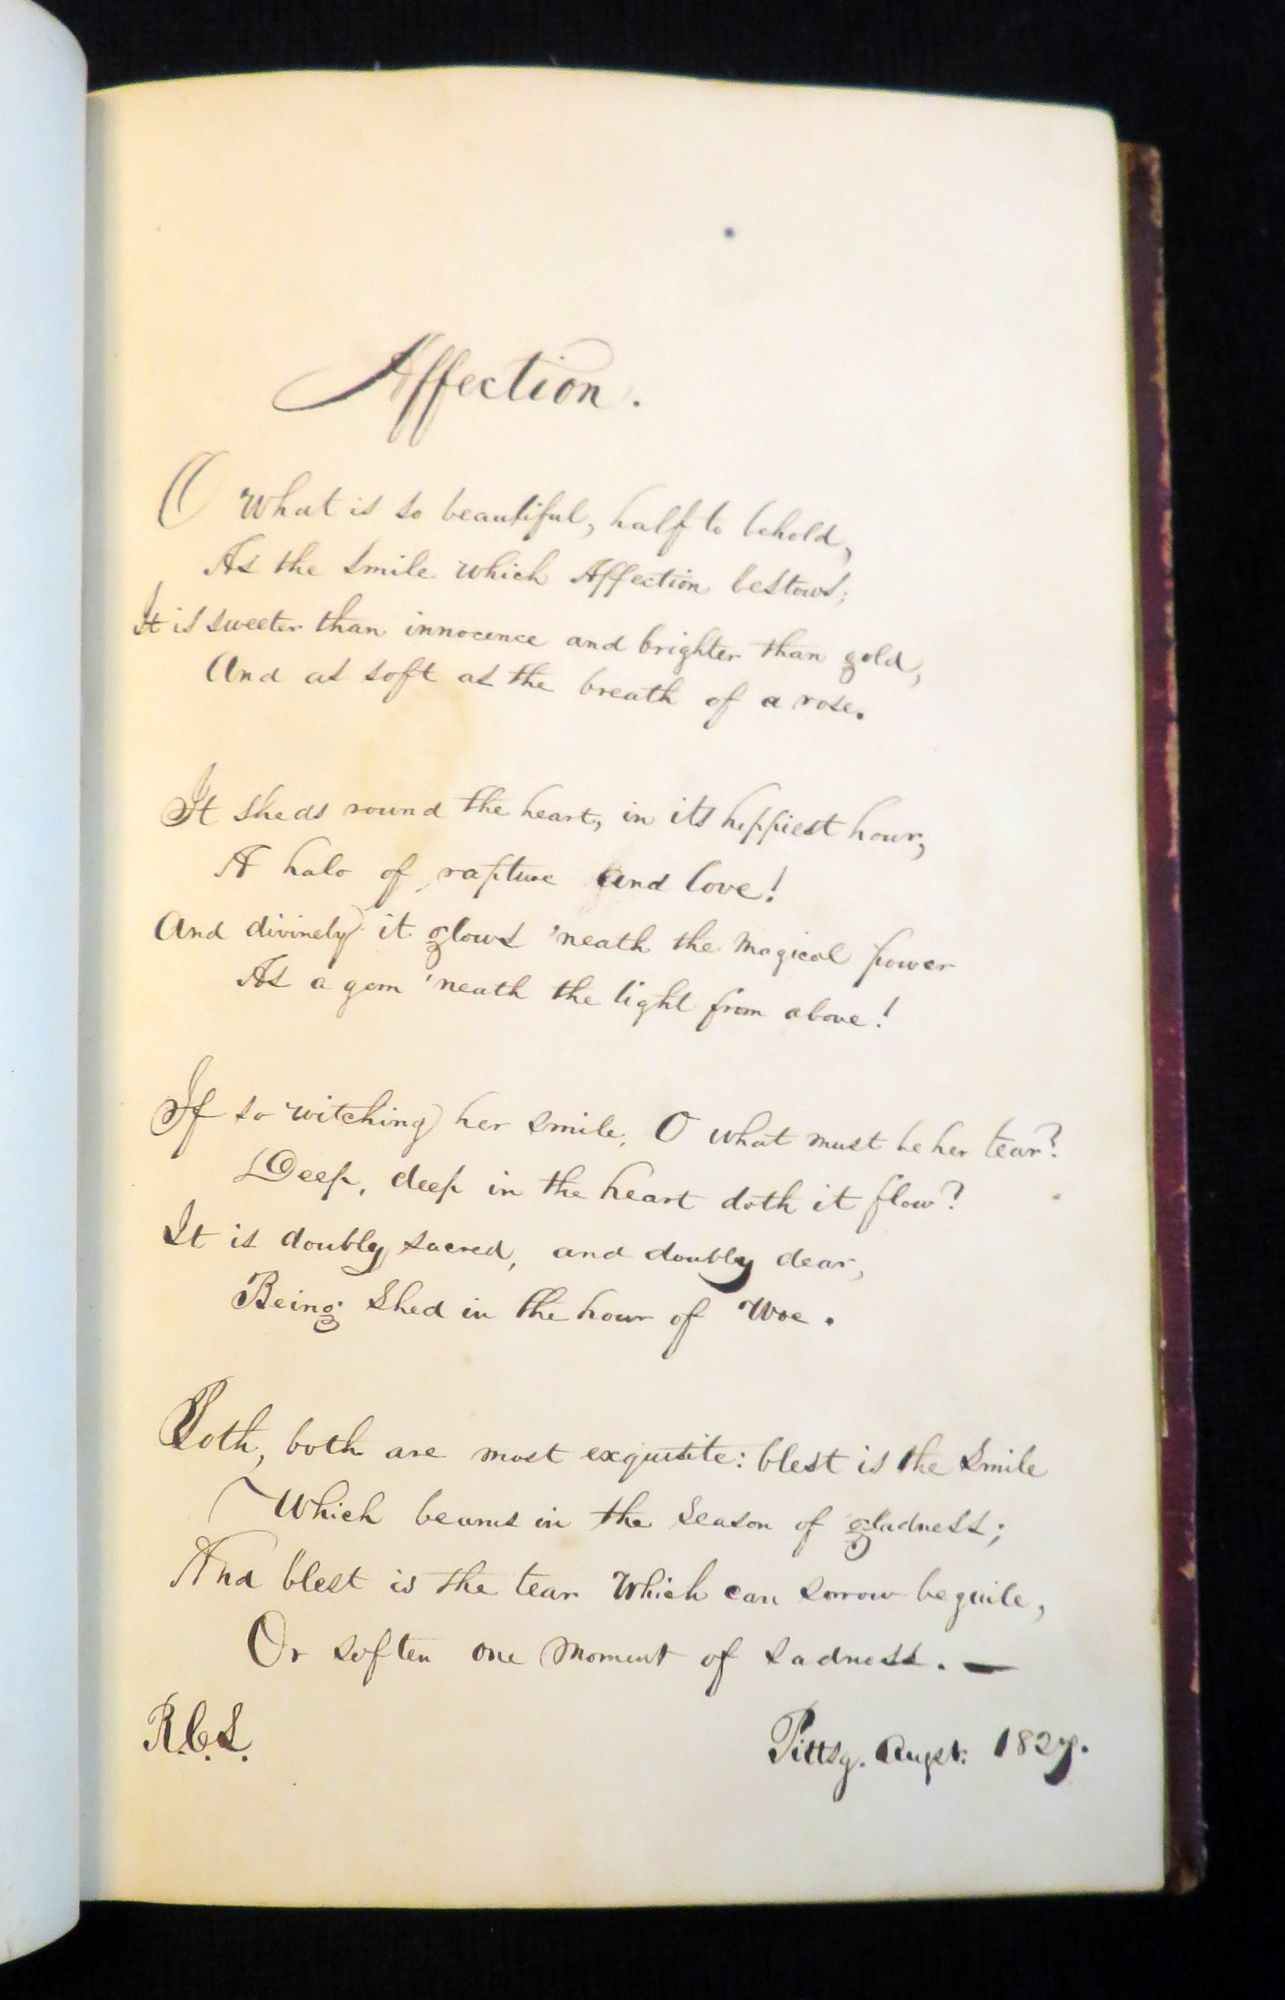 Affection.
O what is so beautiful, half to behold,
As the smile which Affection bestows;
It is sweeter than innocence and brighter than gold,
And as soft as the breath of a rose.
It sheds round the heart, in its happiest hour,
A halo of rapture and love!
And divinely it glows 'neath the magical power
As a gem 'neath the light from above!
If so witching her smile, O what must be her tear?
Deep, deep in the heart doth it flow?
It is doubly sacred, and doubly dear,
Being shed in the hour of Woe.
Both, both are most exquisite: blest is the smile
Which beams in the season of gladness;
And blest is the tear which can sorrow beguile,
Or soften one moment of sadness. —
R.C.S.
Pittsg. Augst. 1827.